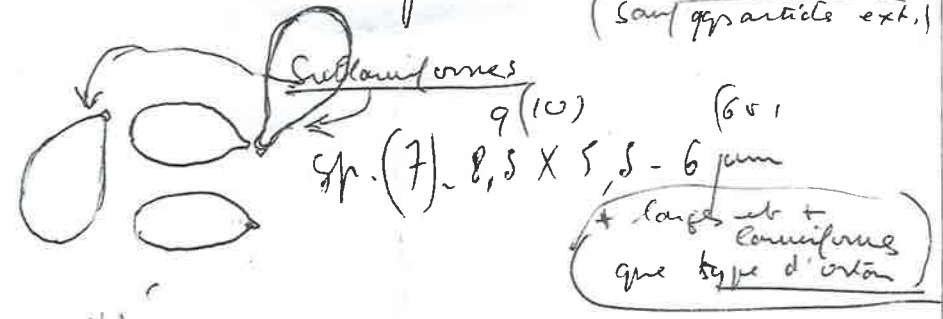 (sauf qqs article ext.)
Sublarmiformes
9 (10) (6,5)
Sp. (7) - 8,5 X 5,5 - 6 µm
+ larges et +
larmiformes
que type d'orton